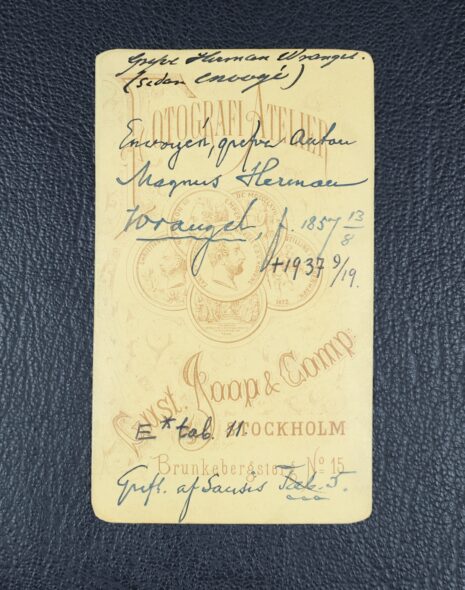 Grefve Herman Wrangel.
(sedan envoyé)
FOTOGRAFI ATELIER
Envoyén, grefve Anton
Magnus Herman
Wrangel, f. 1857 13/8
+1937 9/19.
Gust. Jaap & Comp.
E * tab. 11.
STOCKHOLM
Brunkebergstorg No 15
Grefl. af Sausis Tab. 5.